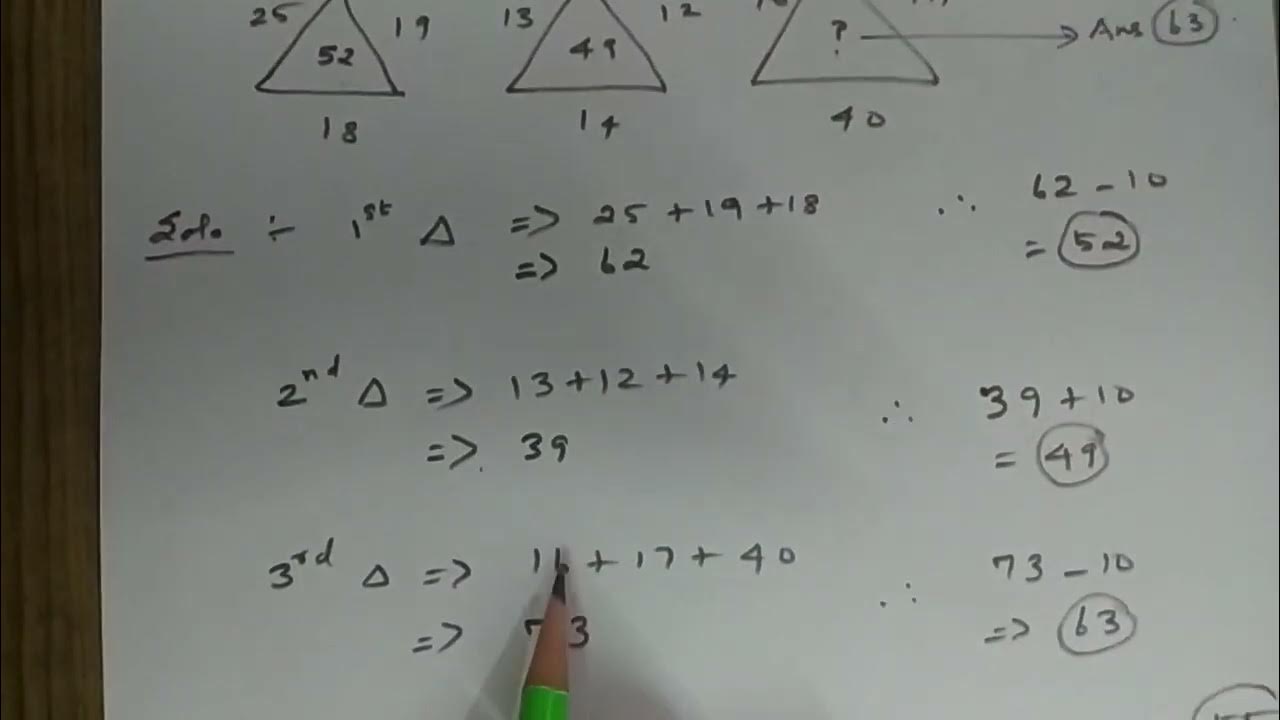 25 19 13 12
52 49 ? → Ans 63
18 14 40
Soln. ÷ 1st Δ => 25 + 19 + 18 ∴ 62 - 10
=> 62 = 52
2nd Δ => 13 + 12 + 14 ∴ 39 + 10
=> 39 = 49
3rd Δ => 16 + 17 + 40 ∴ 73 - 10
=> 73 => 63